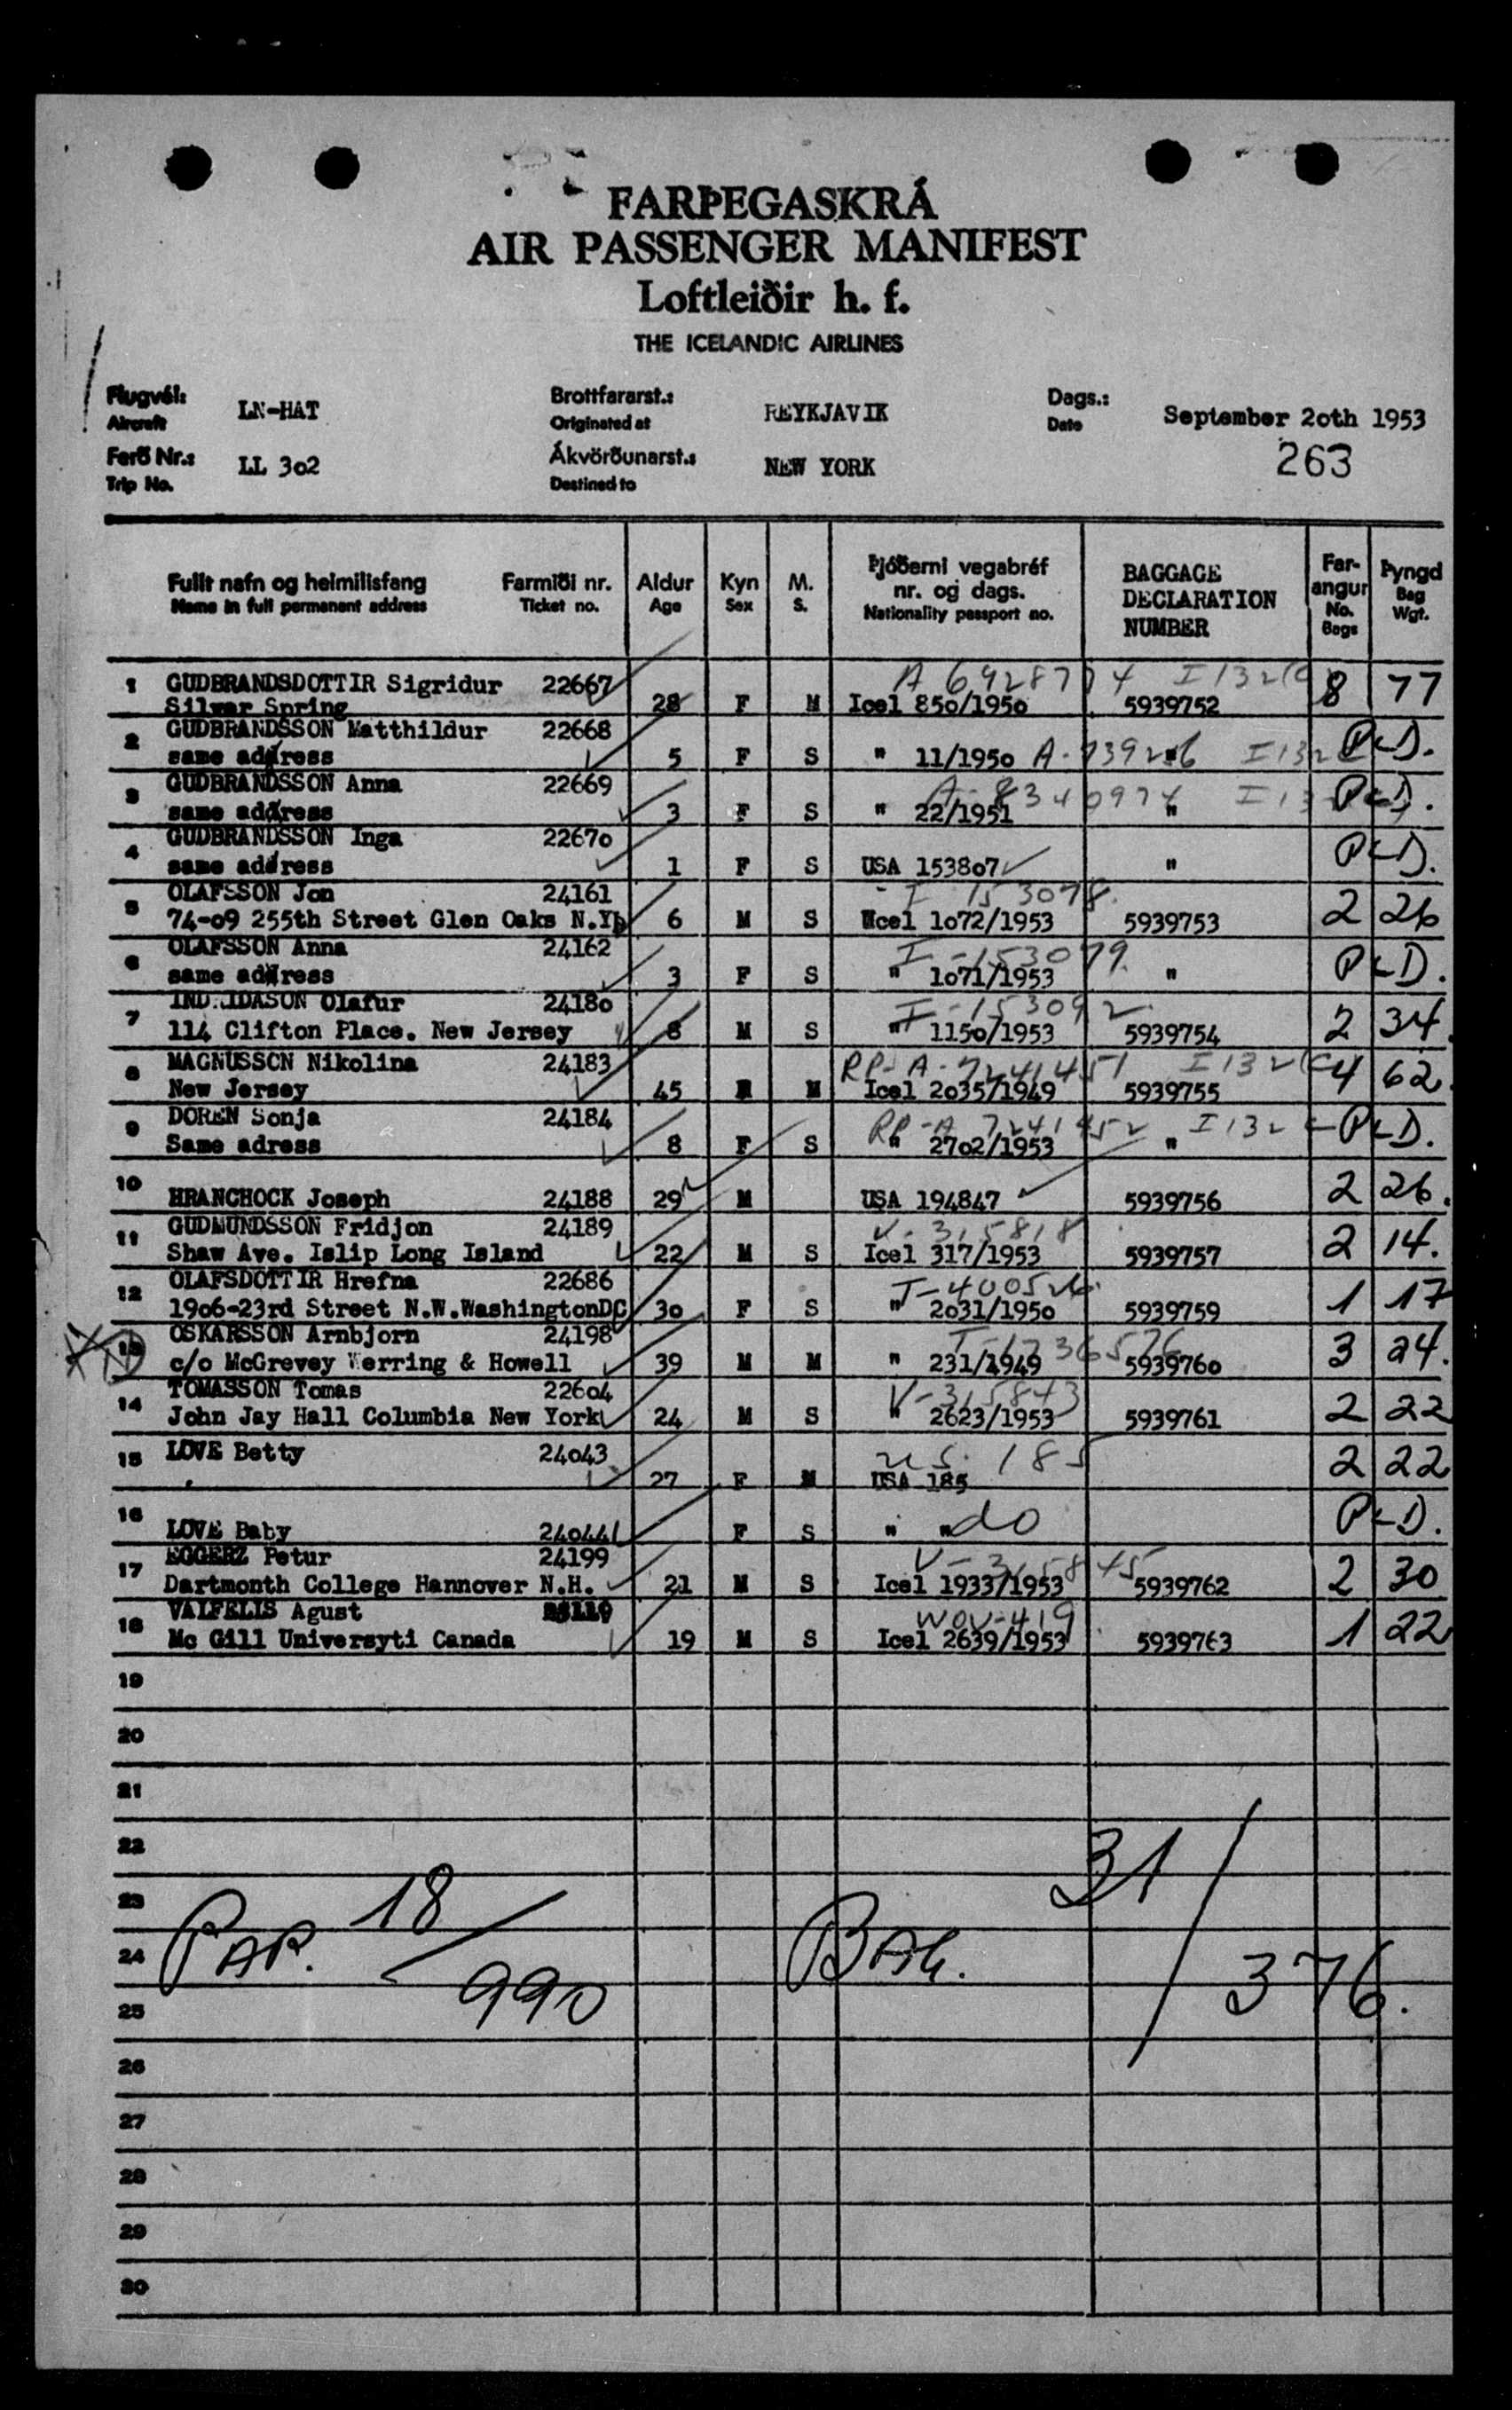 FARÞEGASKRÁ
AIR PASSENGER MANIFEST
Loftleiðir h. f.
THE ICELANDIC AIRLINES
Flugvél: LN-HAT Brottfararst.: REYKJAVIK Dags.: September 2oth 1953
Aircraft Originated at Date
Ferð Nr.: LL 3o2 Ákvörðunarst.: NEW YORK 263
Trip No. Destined to
Fullt nafn og heimilisfang Farmiði nr. Aldur Kyn M. Þjóðerni vegabréf nr. og dags. BAGGAGE DECLARATION NUMBER Far-angur Þyngd
Name in full permanent address Ticket no. Age Sex S. Nationality passport no. No. Bags Bag Wgt.
1 GUDBRANDSDOTTIR Sigridur 22667 A 6928774
Silver Spring 28 F M Icel 85o/195o 5939752 8 77
2 GUDBRANDSSON Matthildur 22668
same address 5 F S " 11/195o P-D.
3 GUDBRANDSSON Anna 22669
same address 3 F S " 22/1951 " P-D.
4 GUDBRANDSSON Inga 2267o
same address 1 F S USA 1538o7 " P-D.
5 OLAFSSON Jon 24161 I 153078.
74-o9 255th Street Glen Oaks N.Y. 6 M S Icel 1o72/1953 5939753 2 26
6 OLAFSSON Anna 24162 I-153079.
same address 3 F S " 1o71/1953 " P-D.
7 Olafur 2418o I-153092
114 Clifton Place. New Jersey 8 M S " 115o/1953 5939754 2 34.
8 MAGNUSSON Nikolina 24183 RP-A-7241451
New Jersey 45 M Icel 2o35/1949 5939755 4 62.
9 DOREN Sonja 24184 RP-A 7241452
Same adress 8 F S " 27o2/1953 " P-D.
10 HRANCHOCK Joseph 24188 29 M USA 194847 5939756 2 26.
11 GUDMUNDSSON Fridjon 24189 V-315818
Shaw Ave. Islip Long Island 22 M S Icel 317/1953 5939757 2 14.
12 OLAFSDOTTIR Hrefna 22686
19o6-23rd Street N.W.WashingtonDC 3o F S " 2o31/195o 5939759 1 17
13 OSKARSSON Arnbjorn 24198
c/o McGrevey Werring & Howell 39 M M " 231/1949 593976o 3 24.
14 TOMASSON Tomas 226o4 V-315843
John Jay Hall Columbia New York 24 M S " 2623/1953 5939761 2 22
15 LOVE Betty 24o43 U.S. 185
27 F M USA 185 2 22
16 LOVE Baby 24o44 F S " " do P-D.
17 EGGERZ Petur 24199 V-315845
Dartmonth College Hannover N.H. 21 M S Icel 1933/1953 5939762 2 30
18 VALFELIS Agust
Mc Gill Universyti Canada 19 M S Icel 2639/1953 5939763 1 22
19
20
21
22
23
24
25
26
27
28
29
30
PAP. 18/990
BAG. 31/376.